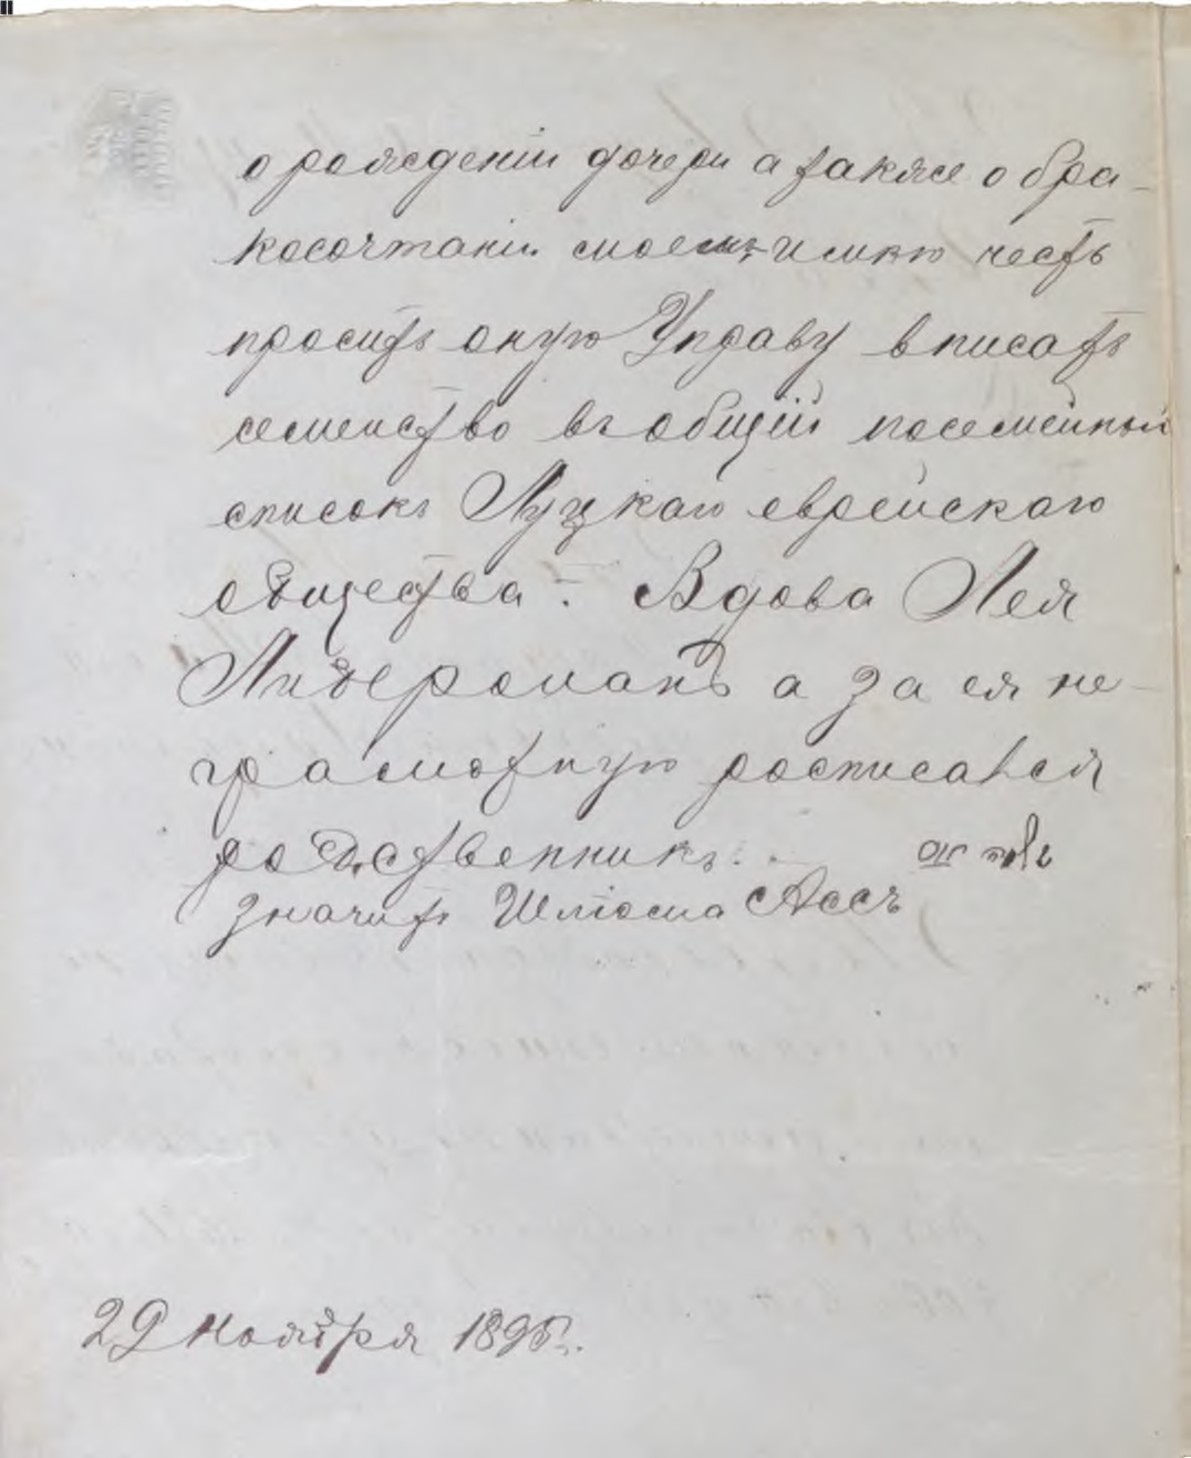 о рожденіи дочери а также о бра-
косочтаніи моемъ имѣю честь
просить оную Управу вписать
семейство въ общій посемейный
списокъ Луцкаго еврейскаго
общества. Вдова Лея
Либерманъ а за ея не-
грамотную росписался
родственникъ.
значитъ Шліома Ассъ
29 Ноября 1895.